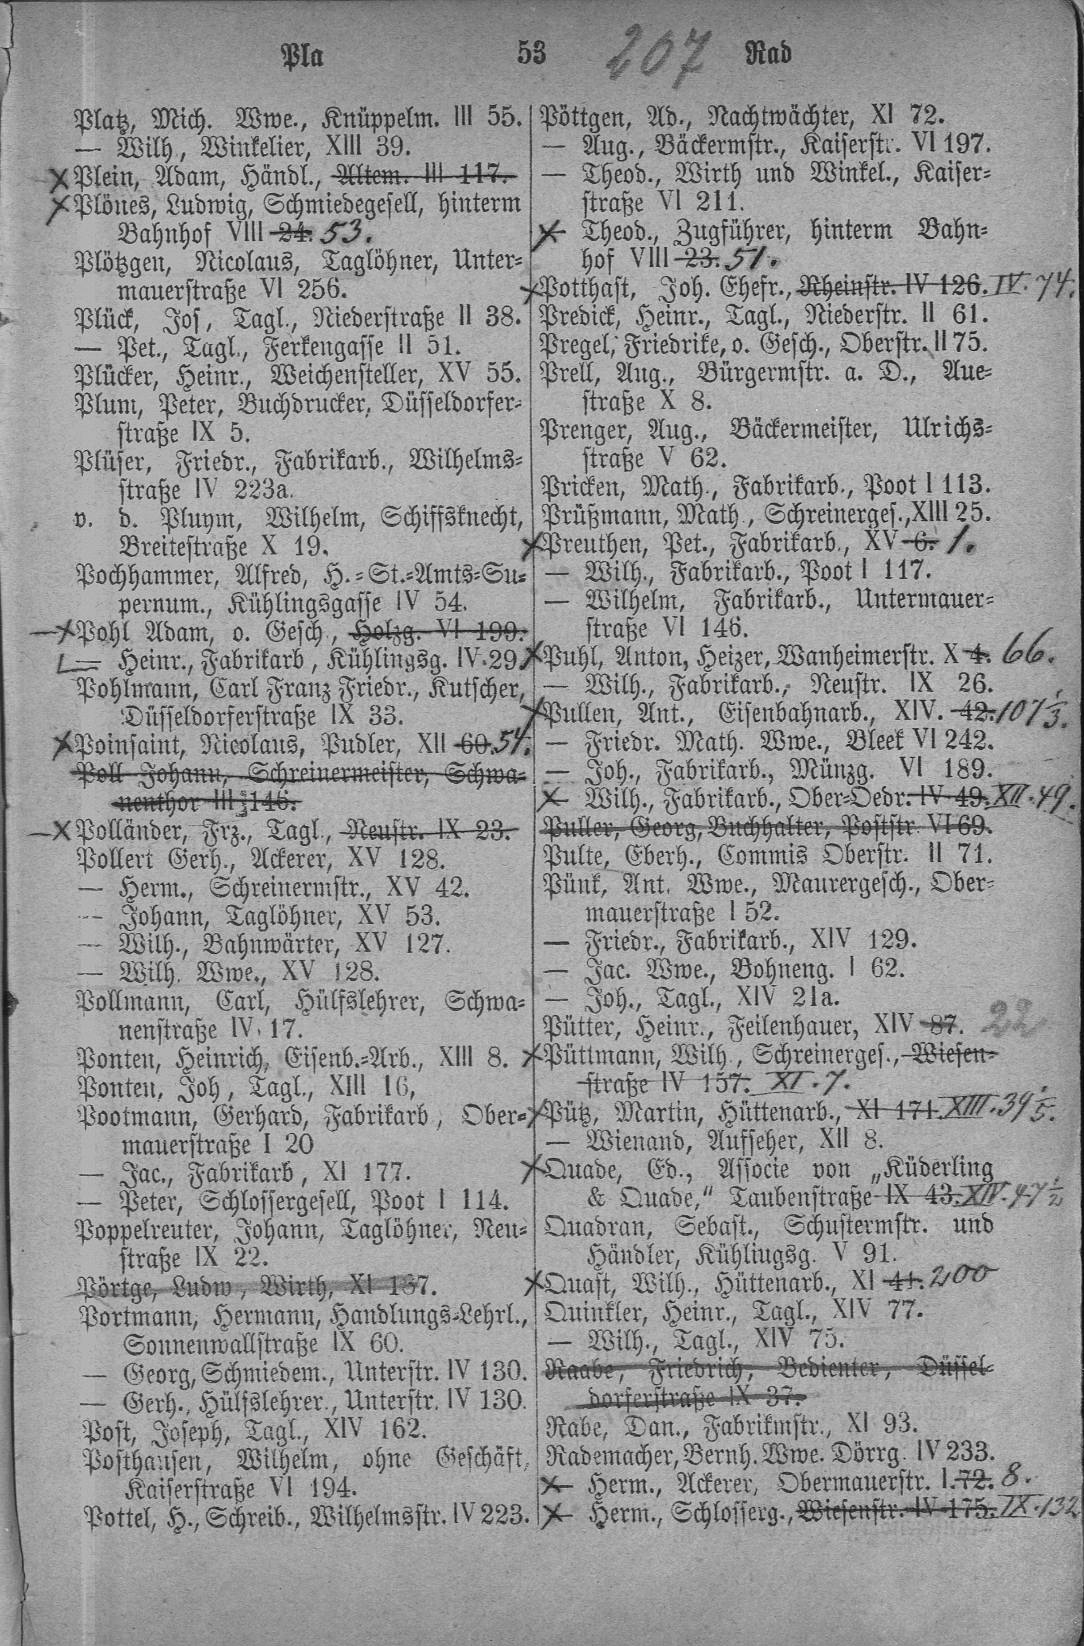 Pla 53 207 Rad
Platz, Mich. Wwe., Knüppelm. III 55.
— Wilh., Winkelier, XIII 39.
X Plein, Adam, Händl., Altem. III 117.
X Plönes, Ludwig, Schmiedegesell, hinterm
Bahnhof VIII 24. 53.
Plötzgen, Nicolaus, Taglöhner, Unter-
mauerstraße VI 256.
Plück, Jos, Tagl., Niederstraße II 38.
— Pet., Tagl., Ferkengasse II 51.
Plücker, Heinr., Weichensteller, XV 55.
Plum, Peter, Buchdrucker, Düsseldorfer-
straße IX 5.
Plüser, Friedr., Fabrikarb., Wilhelms-
straße IV 223a.
v. d. Pluym, Wilhelm, Schiffsknecht,
Breitestraße X 19.
Pochhammer, Alfred, H.-St.-Amts-Su-
pernum., Kühlingsgasse IV 54.
— X Pohl Adam, o. Gesch., Holzg. VI 199.
— Heinr., Fabrikarb, Kühlingsg. IV 29.
Pohlmann, Carl Franz Friedr., Kutscher,
Düsseldorferstraße IX 33.
X Poinsaint, Nicolaus, Pudler, XII 60. 54.
Poll Johann, Schreinermeister, Schwa-
nenthor III 146.
— X Polländer, Frz., Tagl., Neustr. IX 23.
Pollert Gerh., Ackerer, XV 128.
— Herm., Schreinermstr., XV 42.
— Johann, Taglöhner, XV 53.
— Wilh., Bahnwärter, XV 127.
— Wilh. Wwe., XV 128.
Pollmann, Carl, Hülfslehrer, Schwa-
nenstraße IV 17.
Ponten, Heinrich, Eisenb.-Arb., XIII 8.
Ponten, Joh, Tagl., XIII 16,
Pootmann, Gerhard, Fabrikarb, Ober-
mauerstraße I 20
— Jac., Fabrikarb, XI 177.
— Peter, Schlossergesell, Poot I 114.
Poppelreuter, Johann, Taglöhner, Neu-
straße IX 22.
Pörtge, Ludw, Wirth, XI 187.
Portmann, Hermann, Handlungs-Lehrl.,
Sonnenwallstraße IX 60.
— Georg, Schmiedem., Unterstr. IV 130.
— Gerh., Hülfslehrer., Unterstr. IV 130.
Post, Joseph, Tagl., XIV 162.
Posthausen, Wilhelm, ohne Geschäft,
Kaiserstraße VI 194.
Pottel, H., Schreib., Wilhelmsstr. IV 223.
Pöttgen, Ad., Nachtwächter, XI 72.
— Aug., Bäckermstr., Kaiserstr. VI 197.
— Theod., Wirth und Winkel., Kaiser-
straße VI 211.
X — Theod., Zugführer, hinterm Bahn-
hof VIII 23. 51.
X Potthast, Joh. Ehefr., Rheinstr. IV 126. IV. 74.
Predick, Heinr., Tagl., Niederstr. II 61.
Pregel, Friedrike, o. Gesch., Oberstr. II 75.
Prell, Aug., Bürgermstr. a. D., Aue-
straße X 8.
Prenger, Aug., Bäckermeister, Ulrichs-
straße V 62.
Pricken, Math., Fabrikarb., Poot I 113.
Prüßmann, Math, Schreinerges., XIII 25.
X Preuthen, Pet., Fabrikarb., XV 6. 1.
— Wilh., Fabrikarb., Poot I 117.
— Wilhelm, Fabrikarb., Untermauer-
straße VI 146.
X Puhl, Anton, Heizer, Wanheimerstr. X 4. 66.
— Wilh., Fabrikarb., Neustr. IX 26.
X Pullen, Ant., Eisenbahnarb., XIV. 42. 107 1/3.
— Friedr. Math. Wwe., Bleek VI 242.
— Joh., Fabrikarb., Münzg. VI 189.
X — Wilh., Fabrikarb., Ober-Oedr. IV 49. XII. 49.
Puller, Georg, Buchhalter, Poststr. VI 69.
Pulte, Eberh., Commis Oberstr. II 71.
Pünk, Ant. Wwe., Maurergesch., Ober-
mauerstraße I 52.
— Friedr., Fabrikarb., XIV 129.
— Jac. Wwe., Bohneng. I 62.
— Joh., Tagl., XIV 21a.
Pütter, Heinr., Feilenhauer, XIV 87. 22
X Püttmann, Wilh, Schreinerges., Wiesen-
straße IV 157. XI. 7.
X Pütz, Martin, Hüttenarb., XI 171. XIII. 39 1/5.
— Wienand, Aufseher, XII 8.
X Quade, Ed., Associe von „Küderling
& Quade,“ Taubenstraße IX 43. XIV. 47 1/2
Quadran, Sebast., Schustermstr. und
Händler, Kühlingsg. V 91.
X Quast, Wilh., Hüttenarb., XI 41. 200
Quinkler, Heinr., Tagl., XIV 77.
— Wilh., Tagl., XIV 75.
Raabe, Friedrich, Bedienter, Düssel-
dorferstraße IX 37.
Rabe, Dan., Fabrikmstr., XI 93.
Rademacher, Bernh. Wwe. Dörrg. IV 233.
X — Herm., Ackerer, Obermauerstr. I. 72. 8.
X — Herm., Schlosserg., Wiesenstr. IV 175. IX. 132